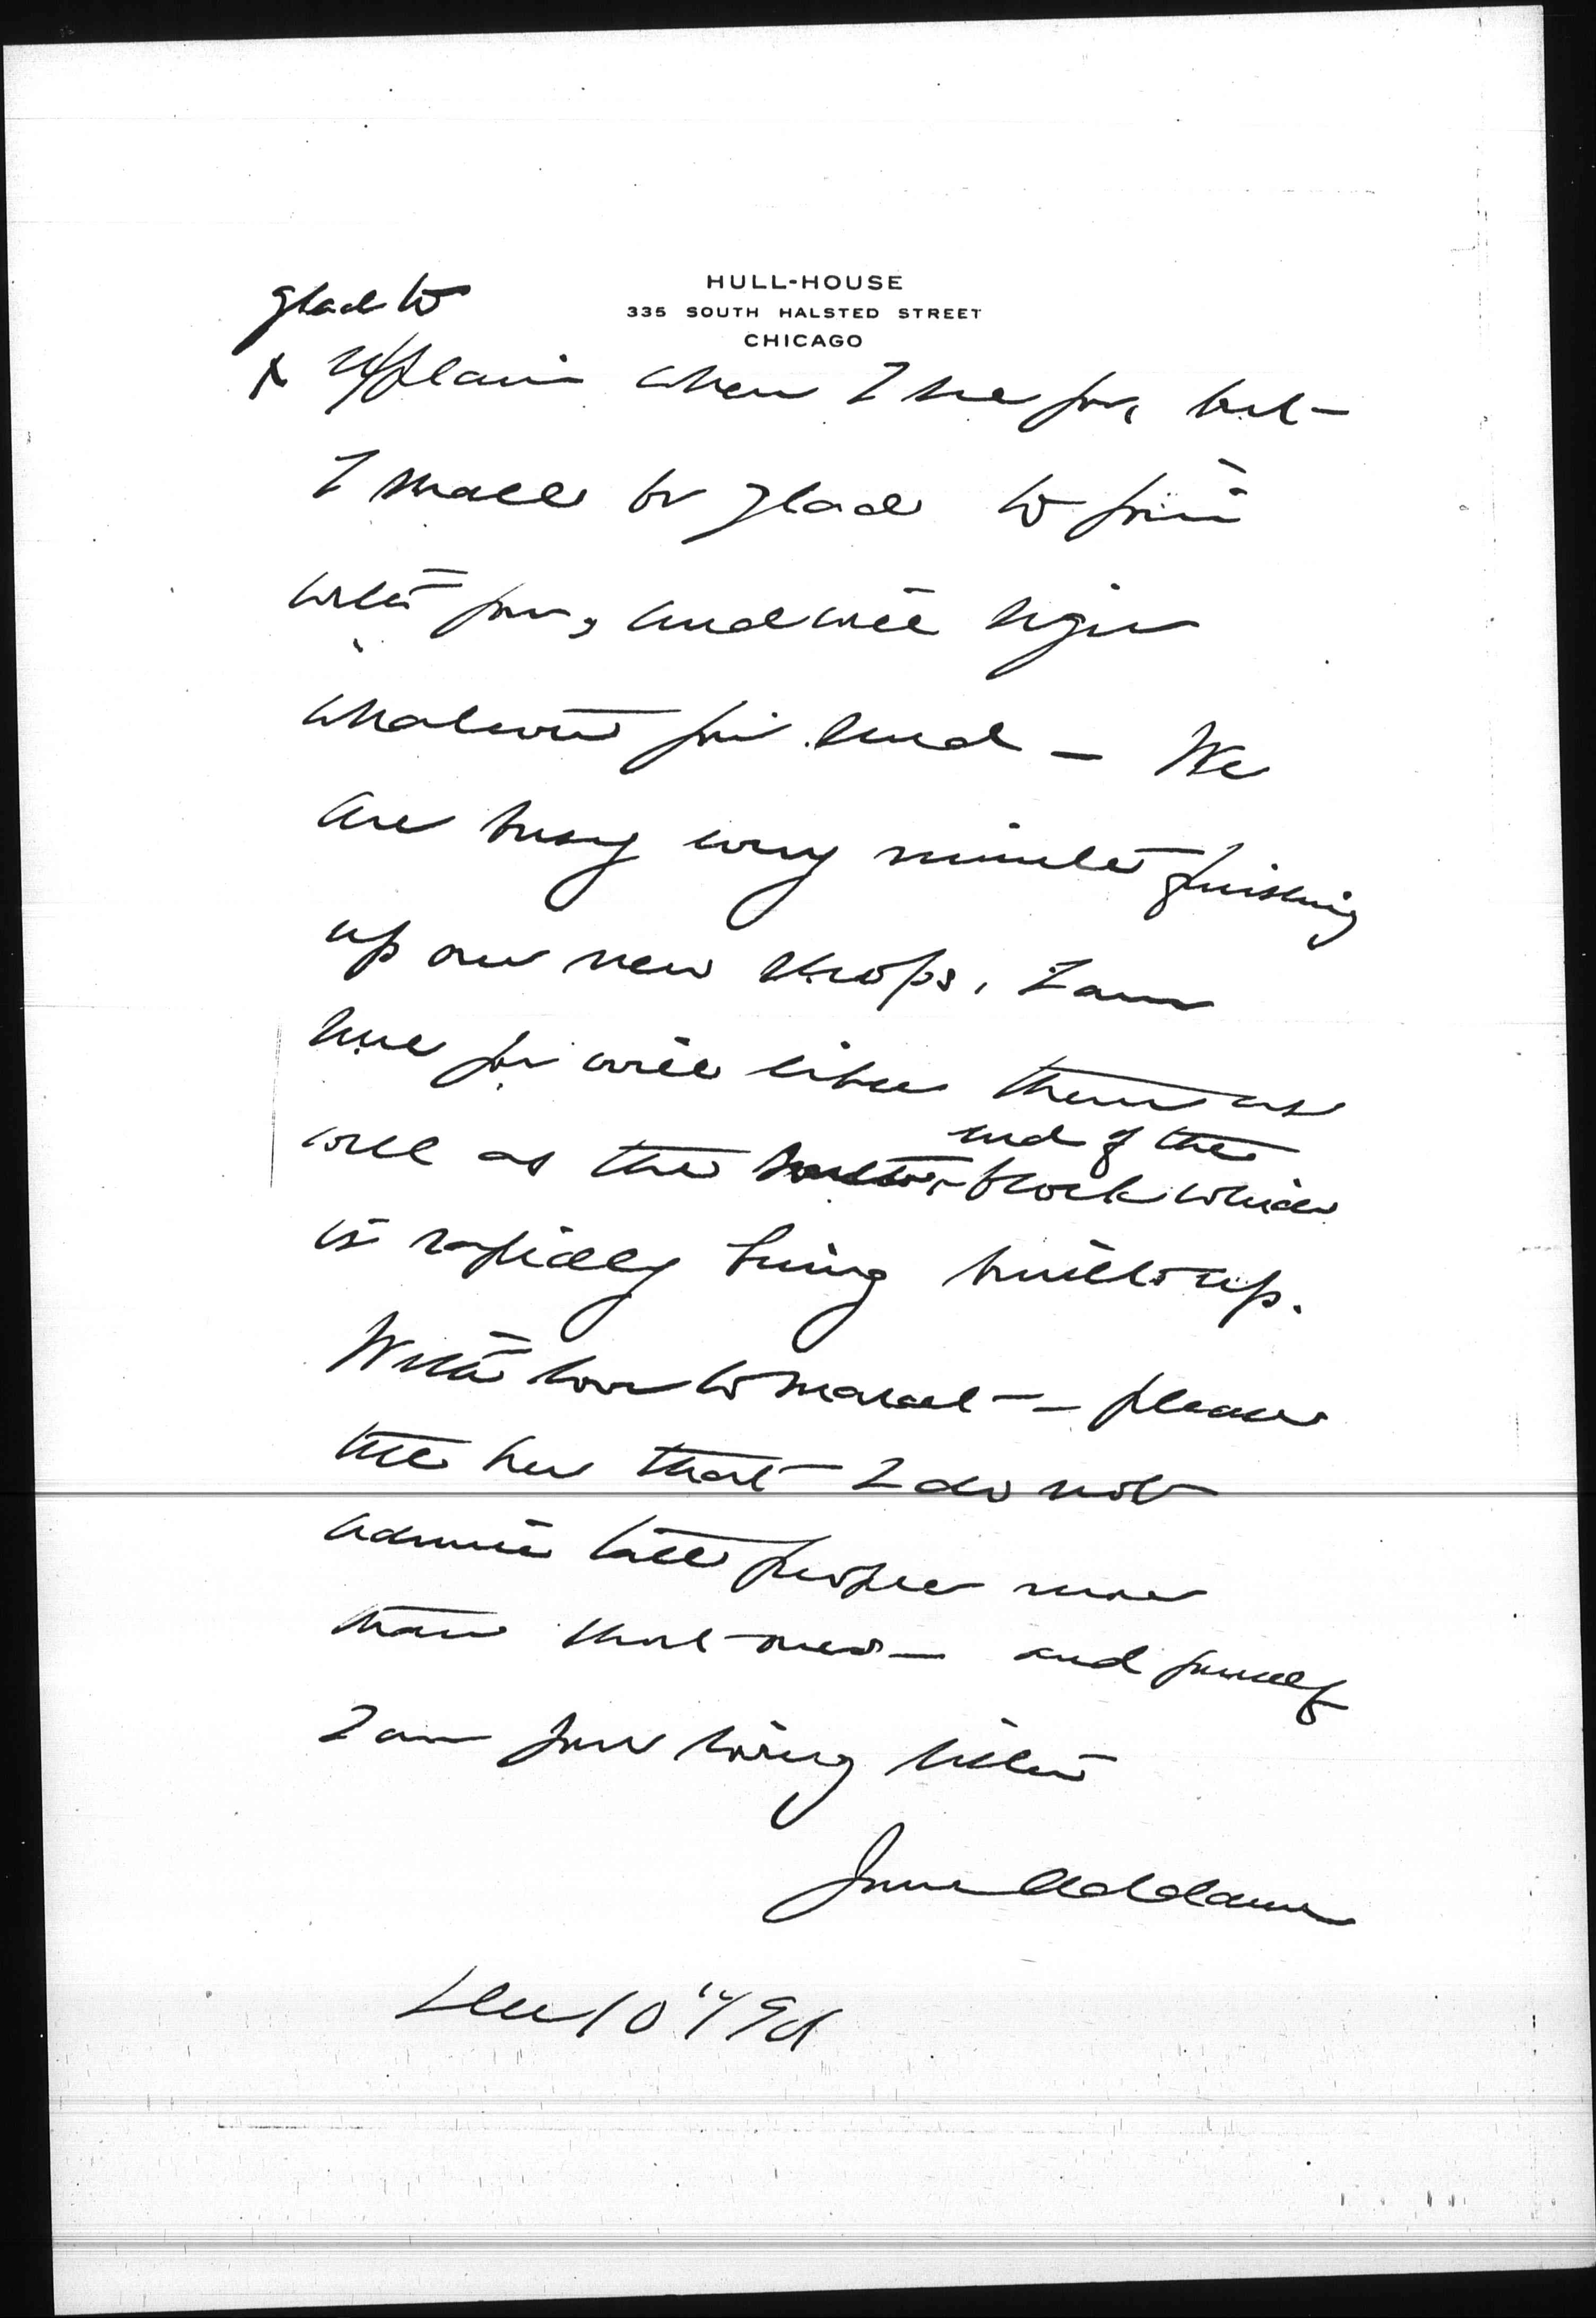 HULL-HOUSE
335 SOUTH HALSTED STREET
CHICAGO
glad to
explain when I see you, but
I shall be glad to join
with you, and will sign
whatever you send — We
are busy every minute finishing
up our new shops, I am
sure you will like them as
well as the end of the block which
is rapidly being built up.
With love to — please
tell her that I do not
admire tall people more
than short ones — and yourself
I am your loving sister
Jane Addams
Dec 10"